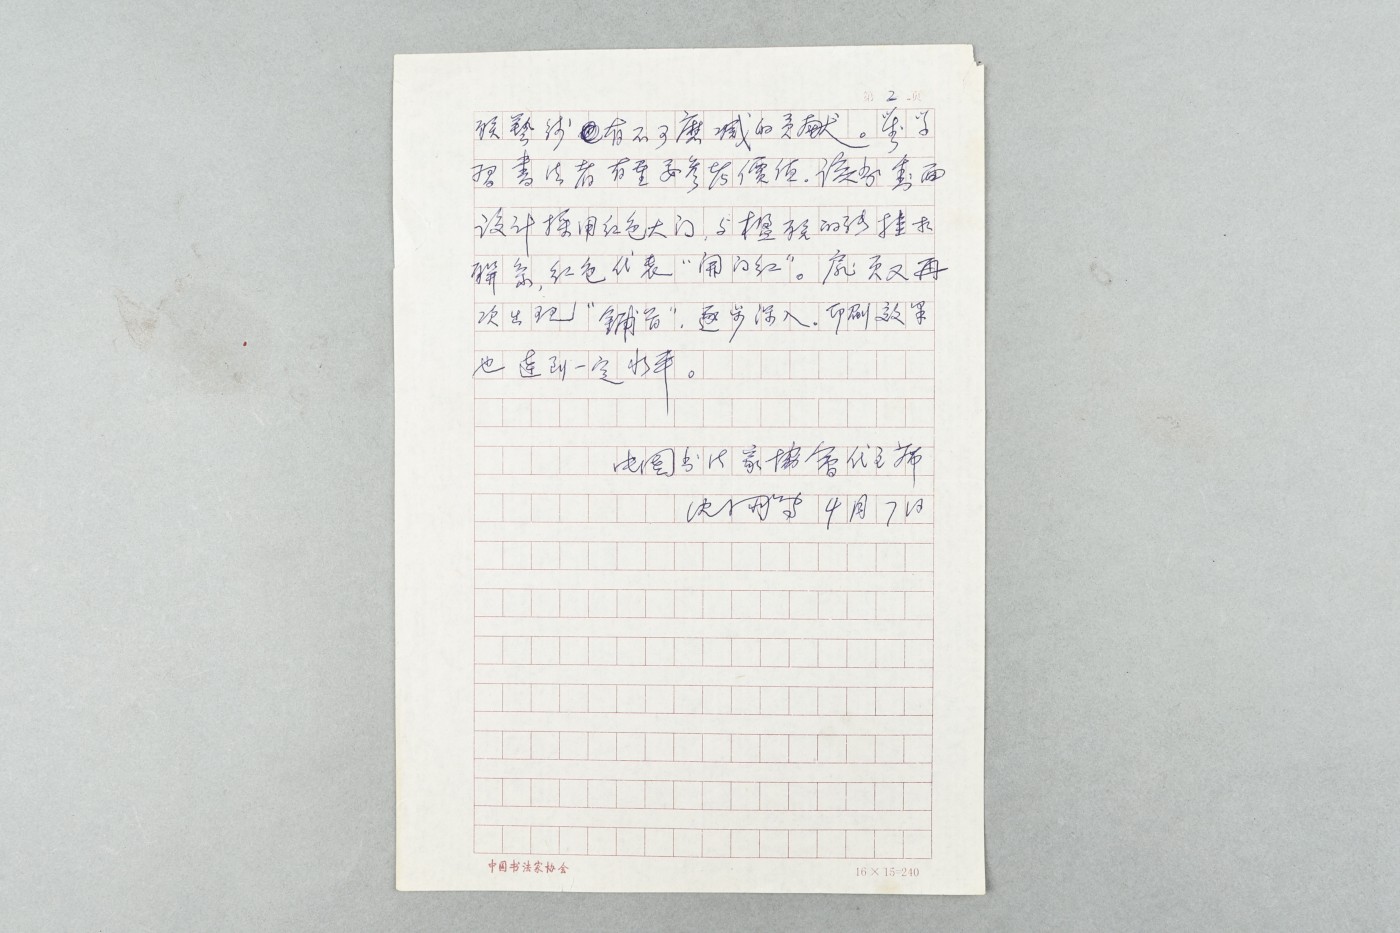 第 2 页
联艺术也有不可磨灭的贡献。对学
習書法者有重要参考價值。该书封面
设计採用红色大门,与楹联的张挂相
聯系,红色代表“開门红”。扉页又再
次出现“鋪首”,逐步深入。印刷效果
也達到一定水平。
中国书法家協會代主席
沈鹏 4月7日
中国书法家协会
16×15=240